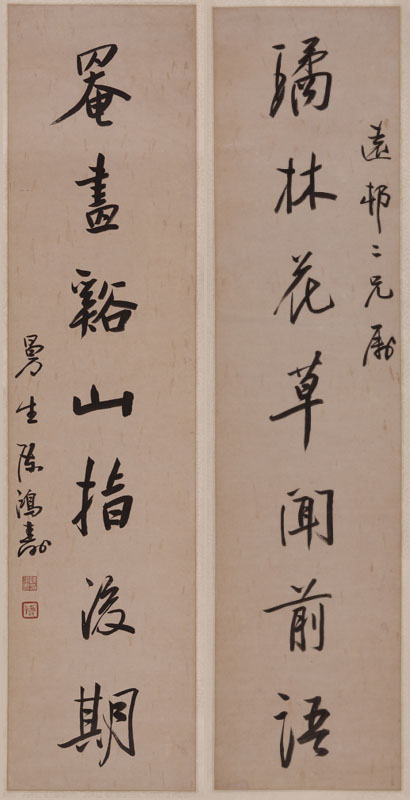 遠邨二兄属
璚林花草聞前語
罨畫谿山指後期
曼生陳鴻壽